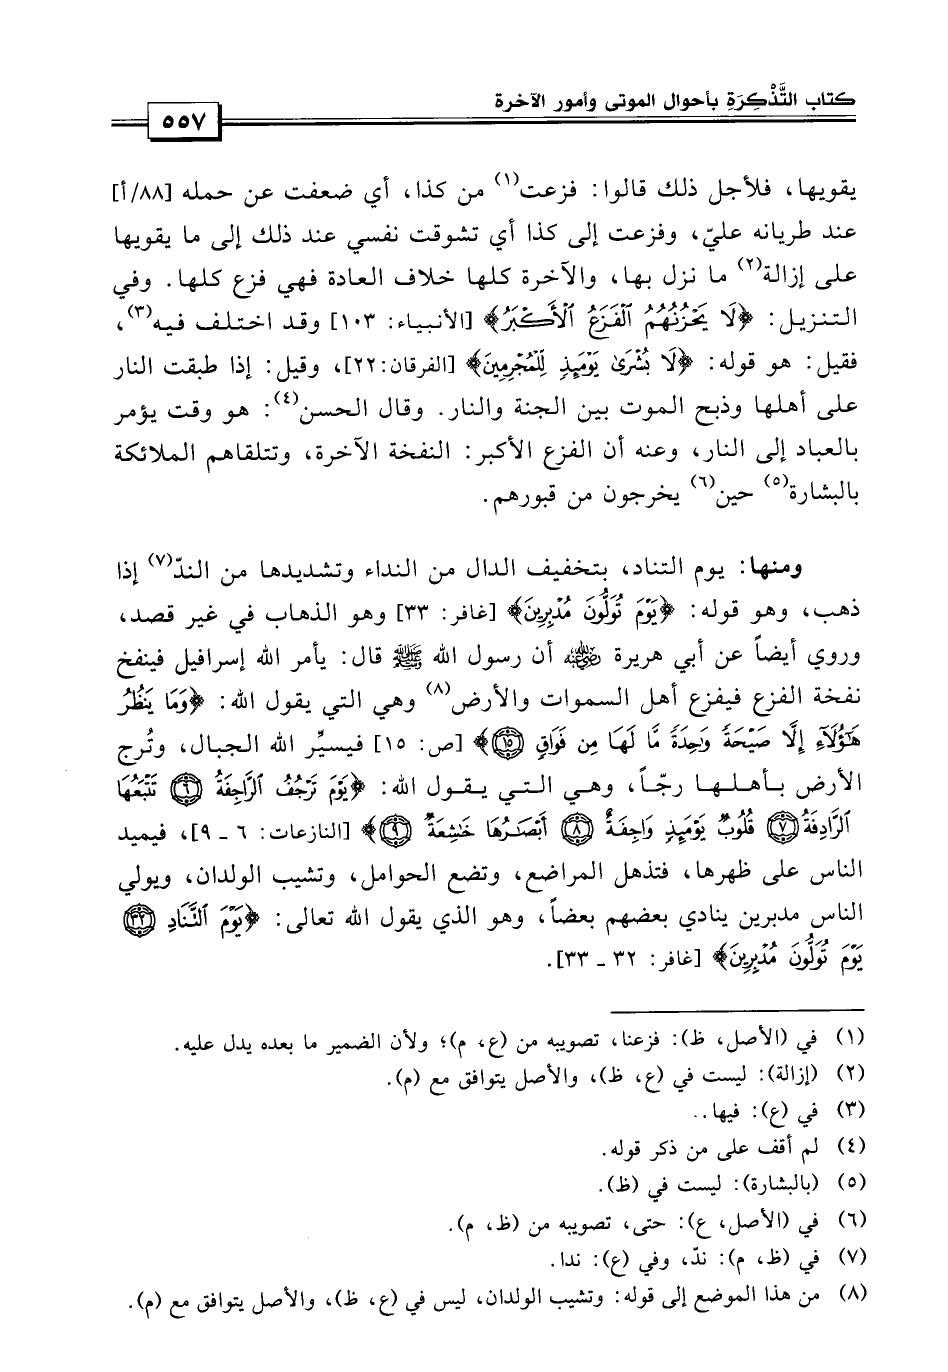 كتاب التَّذْكِرَةِ بأحوال الموتى وأمور الآخرة
٥٥٧
يقويها، فلأجل ذلك قالوا: فزعت(١) من كذا، أي ضعفت عن حمله [٨٨/أ]
عند طريانه عليّ، وفزعت إلى كذا أي تشوقت نفسي عند ذلك إلى ما يقويها
على إزالة(٢) ما نزل بها، والآخرة كلها خلاف العادة فهي فزع كلها. وفي
التنزيل: ﴿لَا يَحْزُنُهُمُ ٱلْفَزَعُ ٱلْأَكْبَرُ﴾ [الأنبياء: ١٠٣] وقد اختلف فيه(٣)،
فقيل: هو قوله: ﴿لَا بُشْرَىٰ يَوْمَئِذٍ لِّلْمُجْرِمِينَ﴾ [الفرقان:٢٢]، وقيل: إذا طبقت النار
على أهلها وذبح الموت بين الجنة والنار. وقال الحسن(٤): هو وقت يؤمر
بالعباد إلى النار، وعنه أن الفزع الأكبر: النفخة الآخرة، وتتلقاهم الملائكة
بالبشارة(٥) حين(٦) يخرجون من قبورهم.
ومنها: يوم التناد، بتخفيف الدال من النداء وتشديدها من الندّ(٧) إذا
ذهب، وهو قوله: ﴿يَوْمَ تُوَلُّونَ مُدْبِرِينَ﴾ [غافر: ٣٣] وهو الذهاب في غير قصد،
وروي أيضاً عن أبي هريرة رضي الله عنه أن رسول الله ﷺ قال: يأمر الله إسرافيل فينفخ
نفخة الفزع فيفزع أهل السموات والأرض(٨) وهي التي يقول الله: ﴿وَمَا يَنظُرُ
هَٰٓؤُلَآءِ إِلَّا صَيْحَةً وَٰحِدَةً مَّا لَهَا مِن فَوَاقٍ ۝١٥﴾ [ص: ١٥] فيسيِّر الله الجبال، وتُرج
الأرض بأهلها رجّاً، وهي التي يقول الله: ﴿يَوْمَ تَرْجُفُ ٱلرَّاجِفَةُ ۝٦ تَتْبَعُهَا
ٱلرَّادِفَةُ ۝٧ قُلُوبٌ يَوْمَئِذٍ وَاجِفَةٌ ۝٨ أَبْصَٰرُهَا خَٰشِعَةٌ ۝٩﴾ [النازعات: ٦ - ٩]، فيميد
الناس على ظهرها، فتذهل المراضع، وتضع الحوامل، وتشيب الولدان، ويولي
الناس مدبرين ينادي بعضهم بعضاً، وهو الذي يقول الله تعالى: ﴿يَوْمَ ٱلتَّنَادِ ۝٣٢
يَوْمَ تُوَلُّونَ مُدْبِرِينَ﴾ [غافر: ٣٢ - ٣٣].
(١) في (الأصل، ظ): فزعنا، تصويبه من (ع، م)؛ ولأن الضمير ما بعده يدل عليه.
(٢) (إزالة): ليست في (ع، ظ)، والأصل يتوافق مع (م).
(٣) في (ع): فيها..
(٤) لم أقف على من ذكر قوله.
(٥) (بالبشارة): ليست في (ظ).
(٦) في (الأصل، ع): حتى، تصويبه من (ظ، م).
(٧) في (ظ، م): ندّ، وفي (ع): ندا.
(٨) من هذا الموضع إلى قوله: وتشيب الولدان، ليس في (ع، ظ)، والأصل يتوافق مع (م).